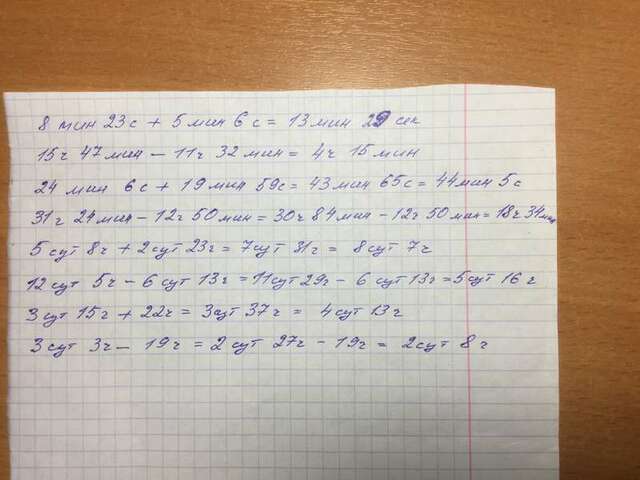 8 мин 23с + 5 мин 6с = 13 мин 29 сек
15ч 47мин - 11ч 32 мин = 4ч 15 мин
24 мин 6с + 19 мин 59с = 43 мин 65с = 44мин 5с
31ч 24мин - 12ч 50мин = 30ч 84мин - 12ч 50мин = 18ч 34мин
5 сут 8ч + 2сут 23ч = 7сут 31ч = 8сут 7ч
12сут 5ч - 6сут 13ч = 11сут 29ч - 6 сут 13ч = 5сут 16 ч
3 сут 15ч + 22ч = 3сут 37ч = 4 сут 13ч
3 сут 3ч - 19ч = 2 сут 27ч - 19ч = 2сут 8 ч